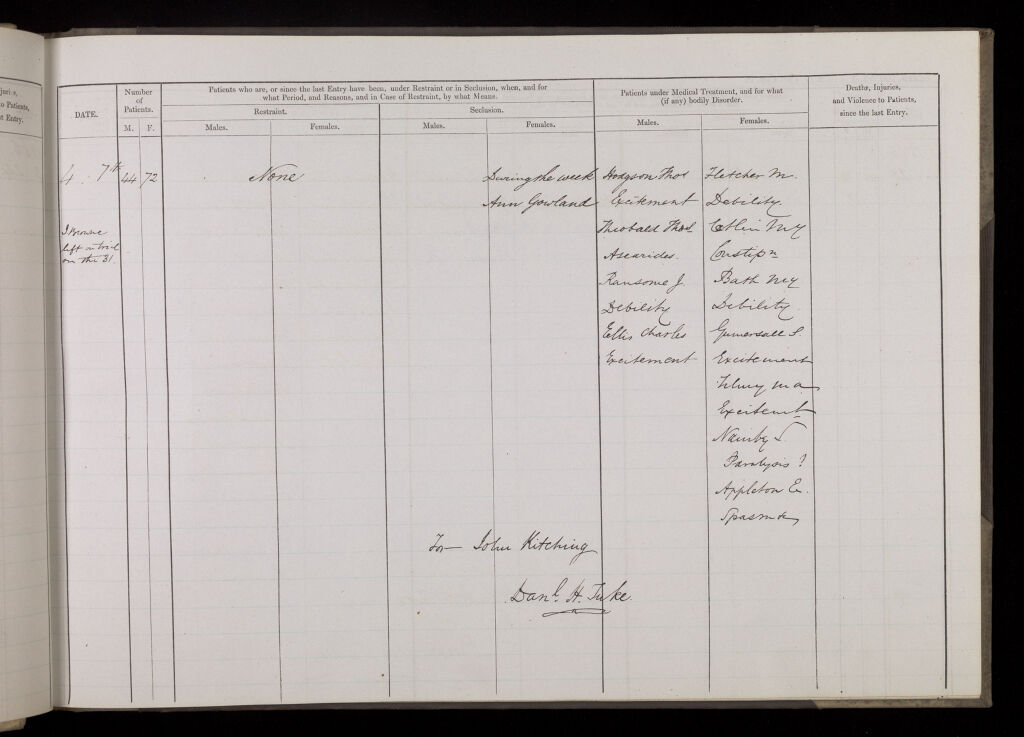 DATE.
Number
of
Patients.
M. F.
Patients who are, or since the last Entry have been, under Restraint or in Seclusion, when, and for
what Period, and Reasons, and in Case of Restraint, by what Means.
Restraint.
Males. Females.
Seclusion.
Males. Females.
Patients under Medical Treatment, and for what
(if any) bodily Disorder.
Males. Females.
Deaths, Injuries,
and Violence to Patients,
since the last Entry.
to Patients,
st Entry.
7th 44 72 None
During the week
Ann Gowland
left
on the 31.
Hodgson Thos
Excitement
Theobald Thos
Ascarides.
Ransome J.
Debility
Ellis Charles
Excitement
Fletcher M.
Debility.
Constipn
Bath My
Debility.
Gumersall S.
Excitement
Excitemt
Nainby S
Paralysis ?
Appleton E.
For John Kitching
Danl. H. Tuke.